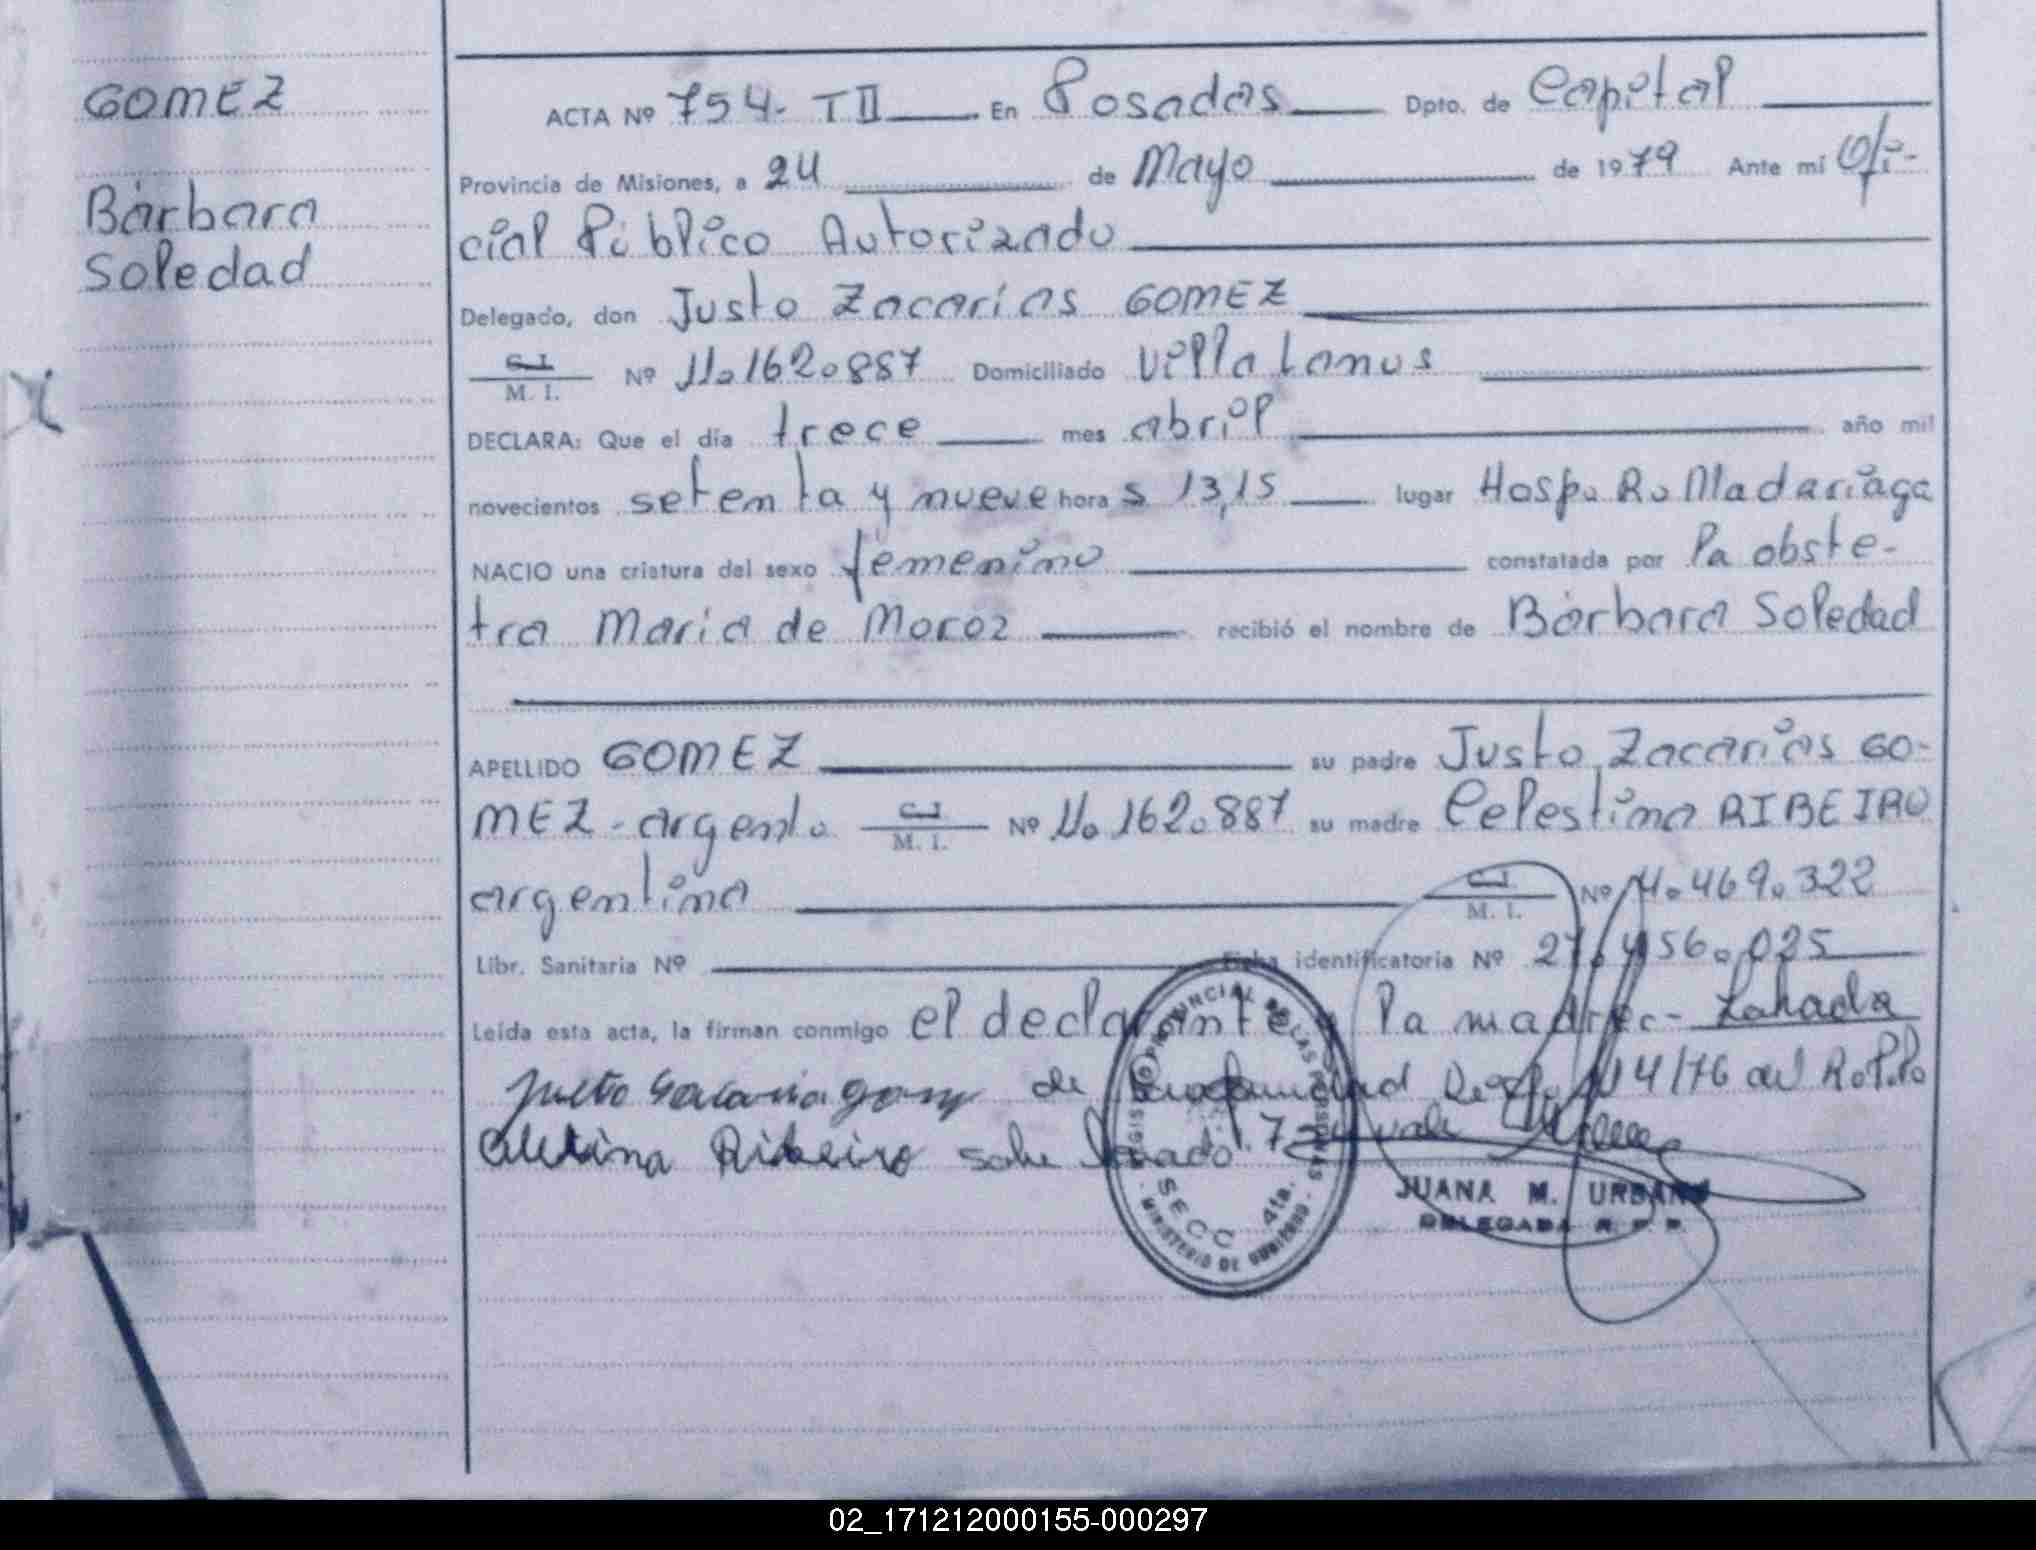 GOMEZ
Bárbara
Soledad
ACTA Nº 754- T II En Posadas Dpto. de Capital
Provincia de Misiones, a 24 de Mayo de 1979 Ante mí Ofi-
cial Público Autorizado
Delegado, don Justo Zacarias GOMEZ
C.I. M. I. Nº 11.162.887 Domiciliado Villa Lanus
DECLARA: Que el día trece mes abril año mil
novecientos setenta y nueve hora s 13,15 lugar Hosp. R. Madariaga
NACIO una criatura del sexo femenino constatada por la obste-
tra Maria de Moroz recibió el nombre de Bárbara Soledad
APELLIDO GOMEZ su padre Justo Zacarias GO-
MEZ - argent. C.I. M. I. Nº 11.162.887 su madre Celestina RIBEIRO
argentina C.I. M. I. Nº 11.469.322
Libr. Sanitaria Nº Ficha identificatoria Nº 27.456.025
Leída esta acta, la firman conmigo el declarante y la madre-
Justo de 14/76 del
Ribeiro vale
REGISTRO PROVINCIAL DE LAS PERSONAS
SECC 4ta.
MINISTERIO DE GOBIERNO
JUANA M. URBANO
DELEGADA R. P. P.
02_171212000155-000297